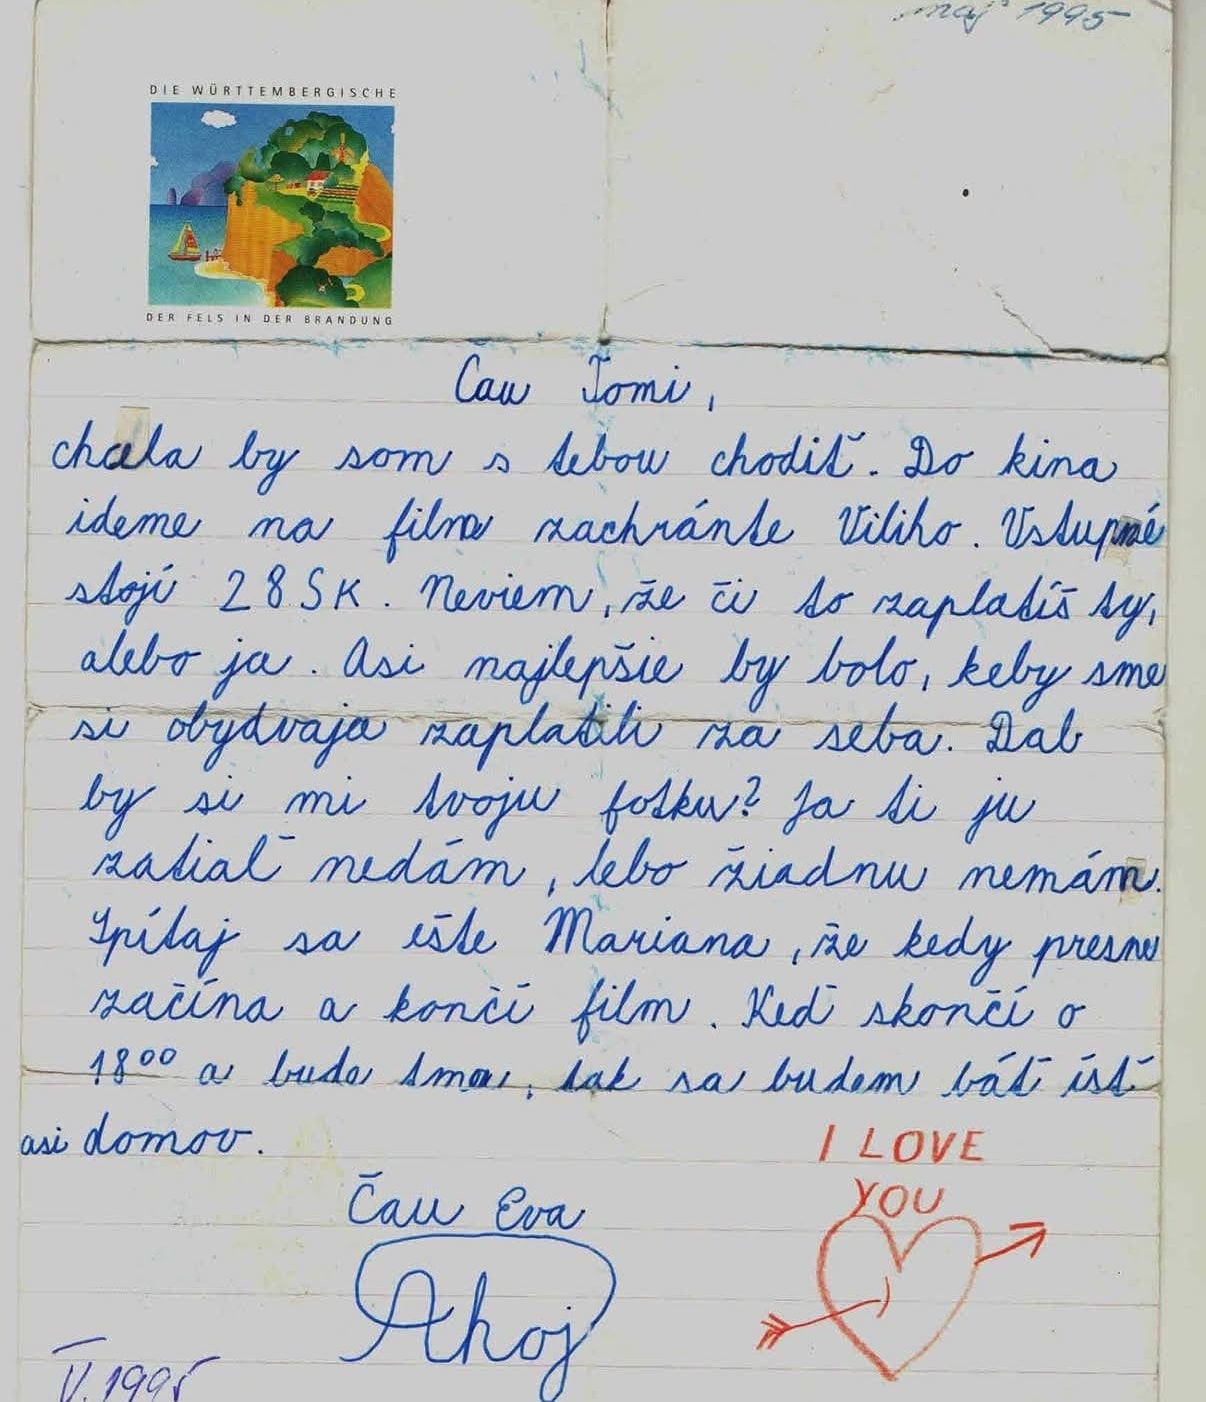 maj 1995
DIE WÜRTTEMBERGISCHE
DER FELS IN DER BRANDUNG
Čau Tomi,
chcela by som s tebou chodiť. Do kina
ideme na film zachráňte Viliho. Vstupné
stojí 28 SK. Neviem, že či to zaplatíš ty,
alebo ja. Asi najlepšie by bolo, keby sme
si obydvaja zaplatili za seba. Dal
by si mi tvoju fotku? Ja ti ju
zatiaľ nedám, lebo žiadnu nemám.
Spítaj sa ešte Mariana, že kedy presne
začína a končí film. Keď skončí o
18⁰⁰ a bude tma, tak sa budem báť ísť
asi domov.
I LOVE
YOU
Čau Eva
Ahoj
V. 1995